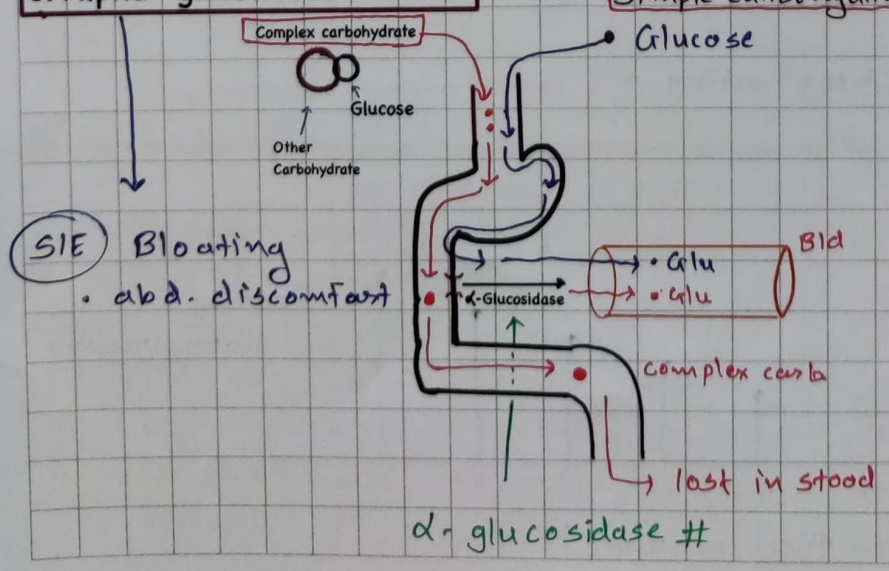 Complex carbohydrate
Glucose
Glucose
Other
Carbohydrate
S/E Bloating
• abd. discomfort
Bld
• Glu
• Glu
α-Glucosidase
complex carb
lost in stood
α-glucosidase #